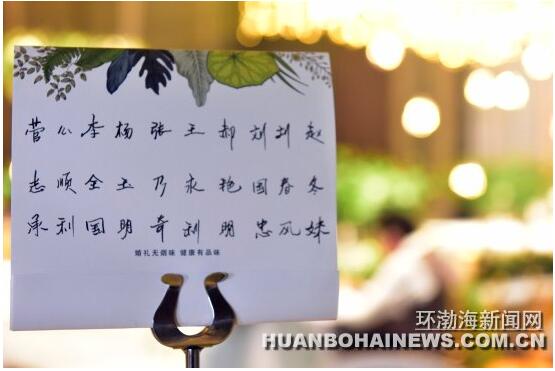 菅心李杨张王郝刘刘赵
志顺全玉乃永艳国春冬
承利国明奇利明忠凤妹
婚礼无烟味 健康有品味
环渤海新闻网
HUANBOHAINEWS.COM.CN